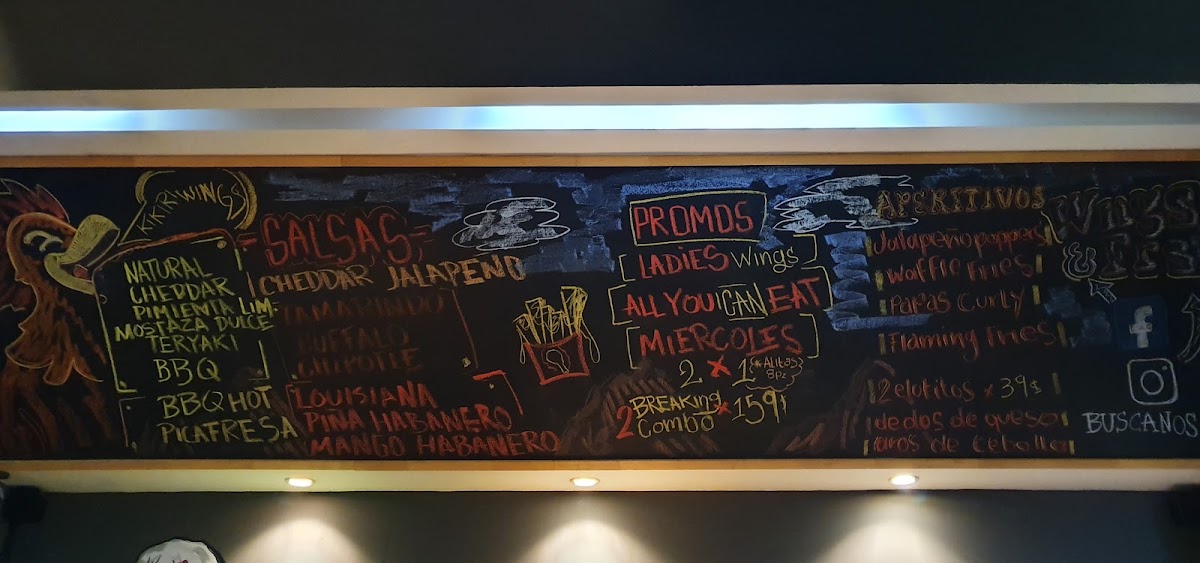 KIKIRIWINGS
NATURAL
CHEDDAR
PIMIENTA LIM-
MOSTAZA DULCE
TERYAKI
BBQ
BBQ HOT
PICAFRESA
SALSAS
CHEDDAR JALAPEÑO
TAMARINDO
BUFFALO
CHIPOTLE
LOUISIANA
PIÑA HABANERO
MANGO HABANERO
PROMOS
LADIES Wings
ALL YOU CAN EAT
MIERCOLES
2 x 1 *Alitas
8pz
2 BREAKING
Combo x 159$
APERITIVOS
Jalapeño poppers
Waffle Fries
Papas Curly
Flaming Fries
2 elotitos x 39$
dedos de queso
aros de cebolla
Wings
&
f
BUSCANOS